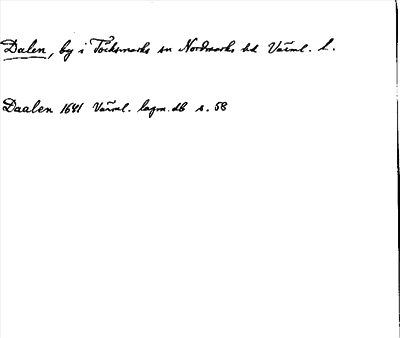 Dalen, by i Töcksmarks sn Nordmarks hd Värml. l.
Daalen 1641 Värml. lagm.db s. 58